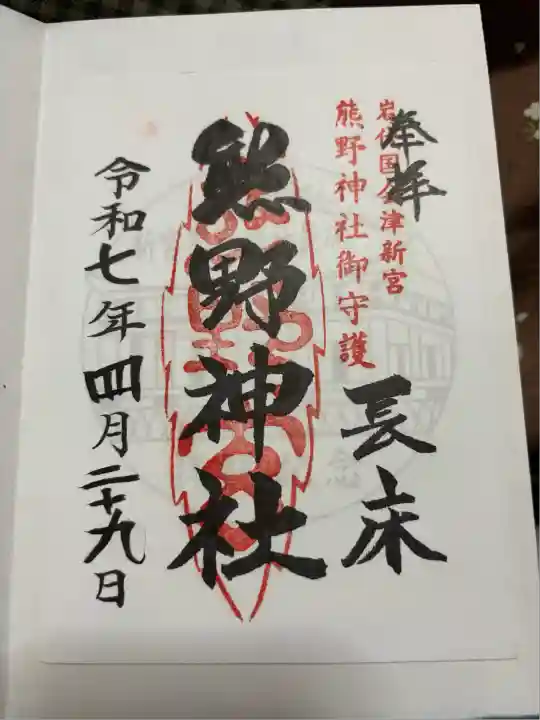 奉拝
岩代国会津新宮
熊野神社御守護
長床
熊野神社
令和七年四月二十九日